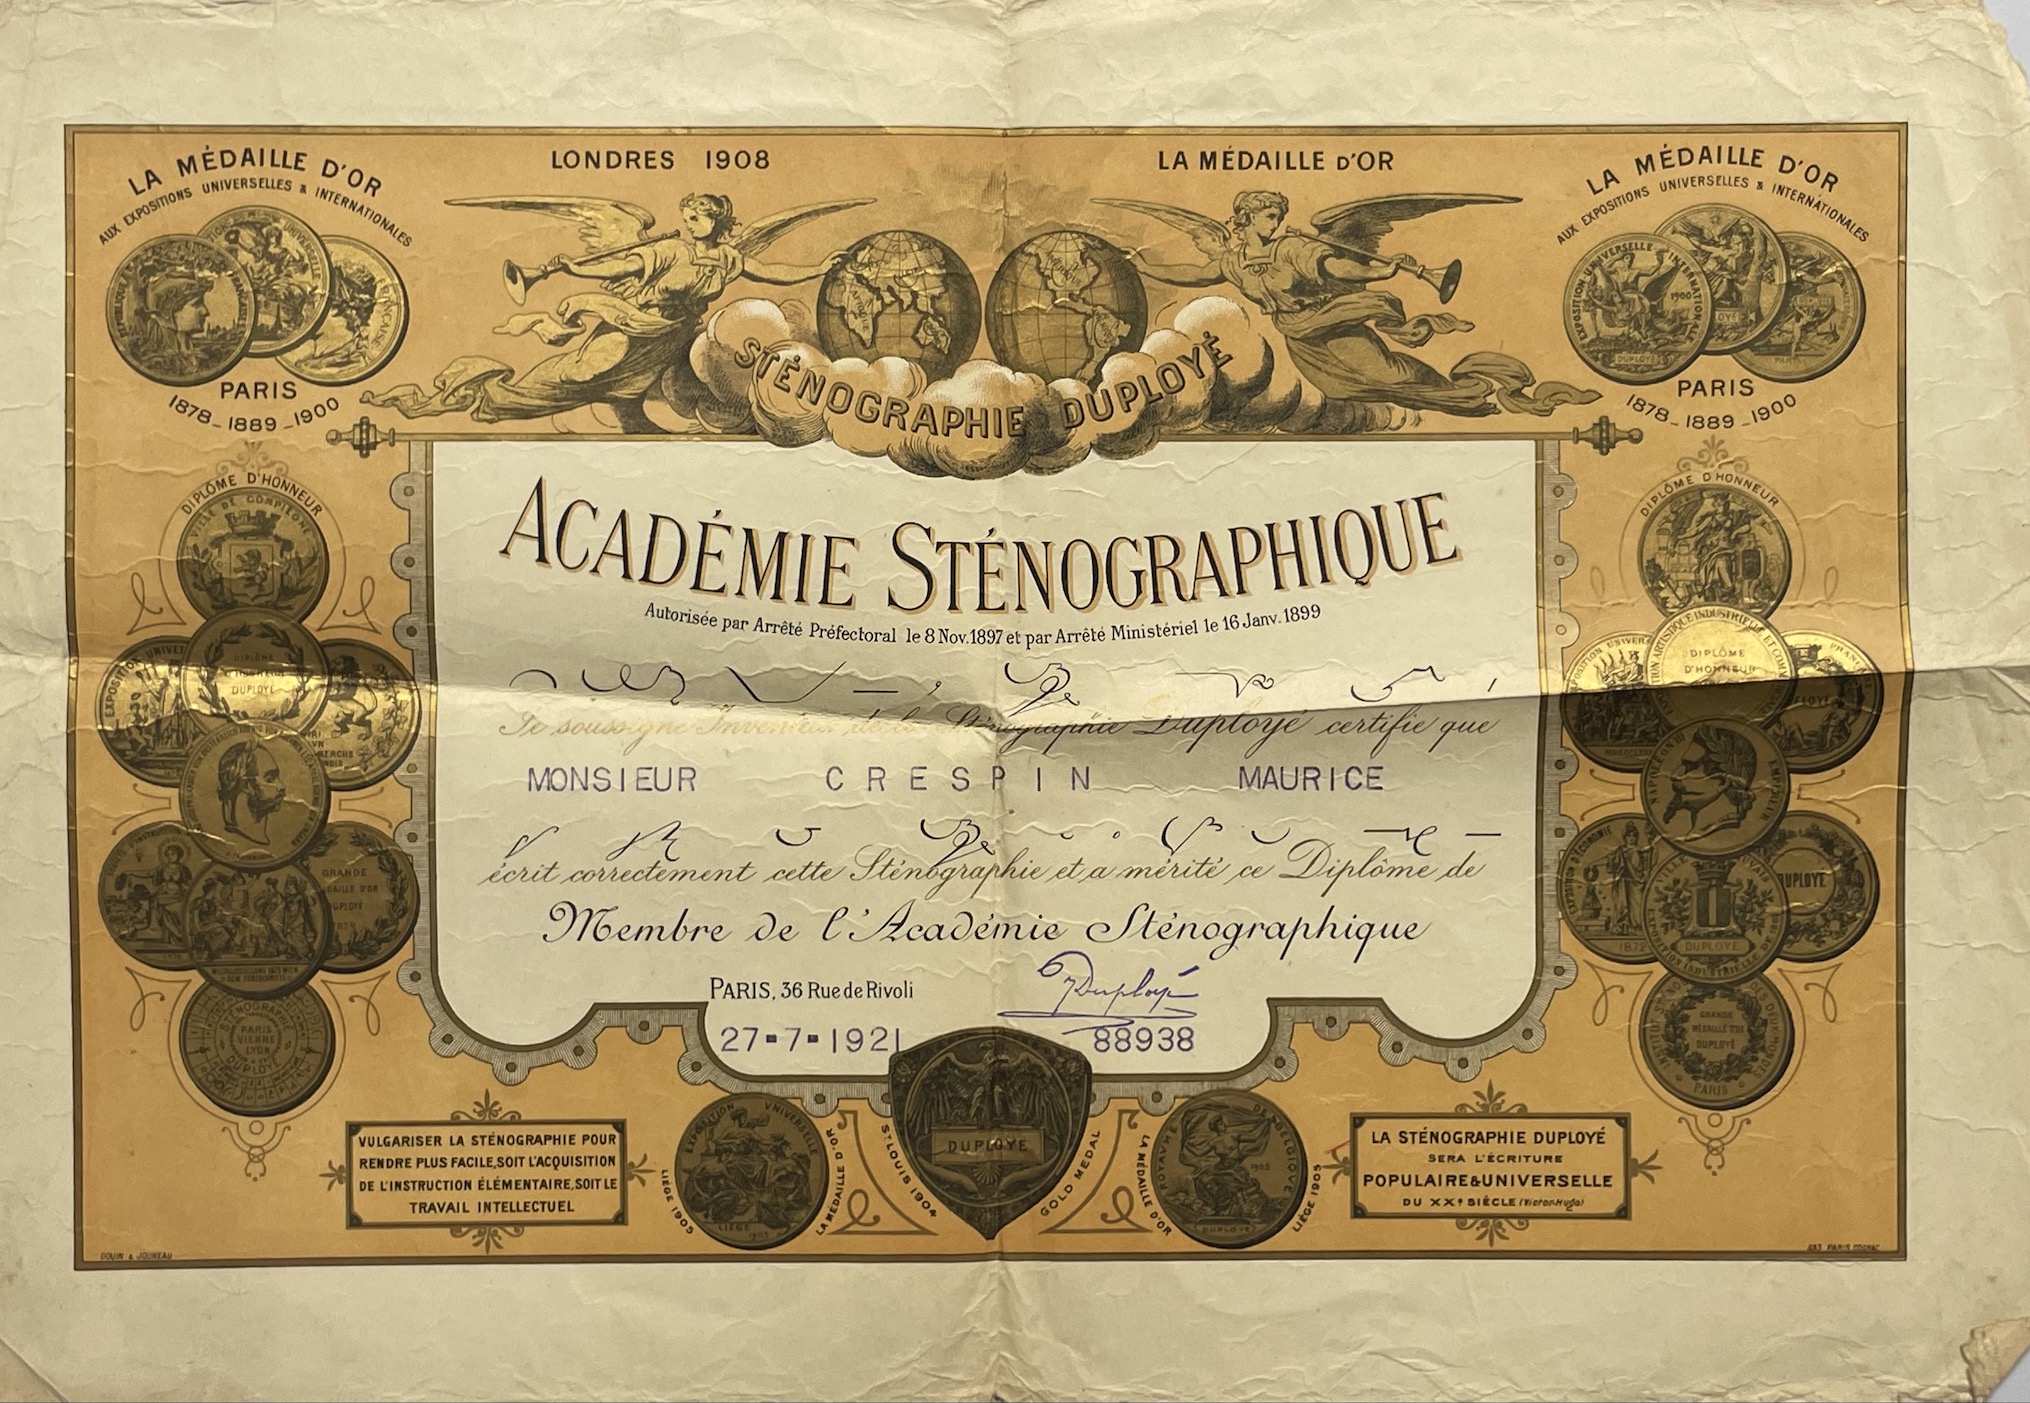 LA MÉDAILLE D'OR
AUX EXPOSITIONS UNIVERSELLES & INTERNATIONALES
PARIS
1878-1889-1900
LONDRES 1908
LA MÉDAILLE D'OR
STÉNOGRAPHIE DUPLOYÉ
LA MÉDAILLE D'OR
AUX EXPOSITIONS UNIVERSELLES & INTERNATIONALES
EXPOSITION UNIVERSELLE INTERNATIONALE
1900
DUPLOYÉ
PARIS
1878-1889-1900
DIPLÔME D'HONNEUR
VILLE DE COMPIEGNE
DIPLÔME
DUPLOYÉ
GRANDE
DUPLOYÉ
STÉNOGRAPHIE
PARIS
VIENNE
LYON
DUPLOYÉ
ACADÉMIE STÉNOGRAPHIQUE
Autorisée par Arrêté Préfectoral le 8 Nov. 1897 et par Arrêté Ministériel le 16 Janv. 1899
Je soussigné Inventeur de la Sténographie Duployé certifie que
MONSIEUR CRESPIN MAURICE
écrit correctement cette Sténographie et a mérité ce Diplôme de
Membre de l'Académie Sténographique
PARIS, 36 Rue de Rivoli
Duployé
27-7-1921
88938
DIPLÔME D'HONNEUR
DIPLÔME
D'HONNEUR
NAPOLÉON III EMPEREUR
DUPLOYÉ
DUPLOYÉ
GRANDE
MÉDAILLE D'OR
DUPLOYÉ
PARIS
VULGARISER LA STÉNOGRAPHIE POUR
RENDRE PLUS FACILE, SOIT L'ACQUISITION
DE L'INSTRUCTION ÉLÉMENTAIRE, SOIT LE
TRAVAIL INTELLECTUEL
LIÈGE 1905
EXPOSITION UNIVERSELLE
LIÈGE
1905
LA MÉDAILLE D'OR
ST LOUIS 1904
DUPLOYÉ
GOLD MEDAL
LA MÉDAILLE D'OR
ROYAUME DE BELGIQUE
1905
DUPLOYÉ
LIÈGE 1905
LA STÉNOGRAPHIE DUPLOYÉ
SERA L'ÉCRITURE
POPULAIRE & UNIVERSELLE
DU XXe SIÈCLE (Victor-Hugo)
DOUIN & JOUNEAU